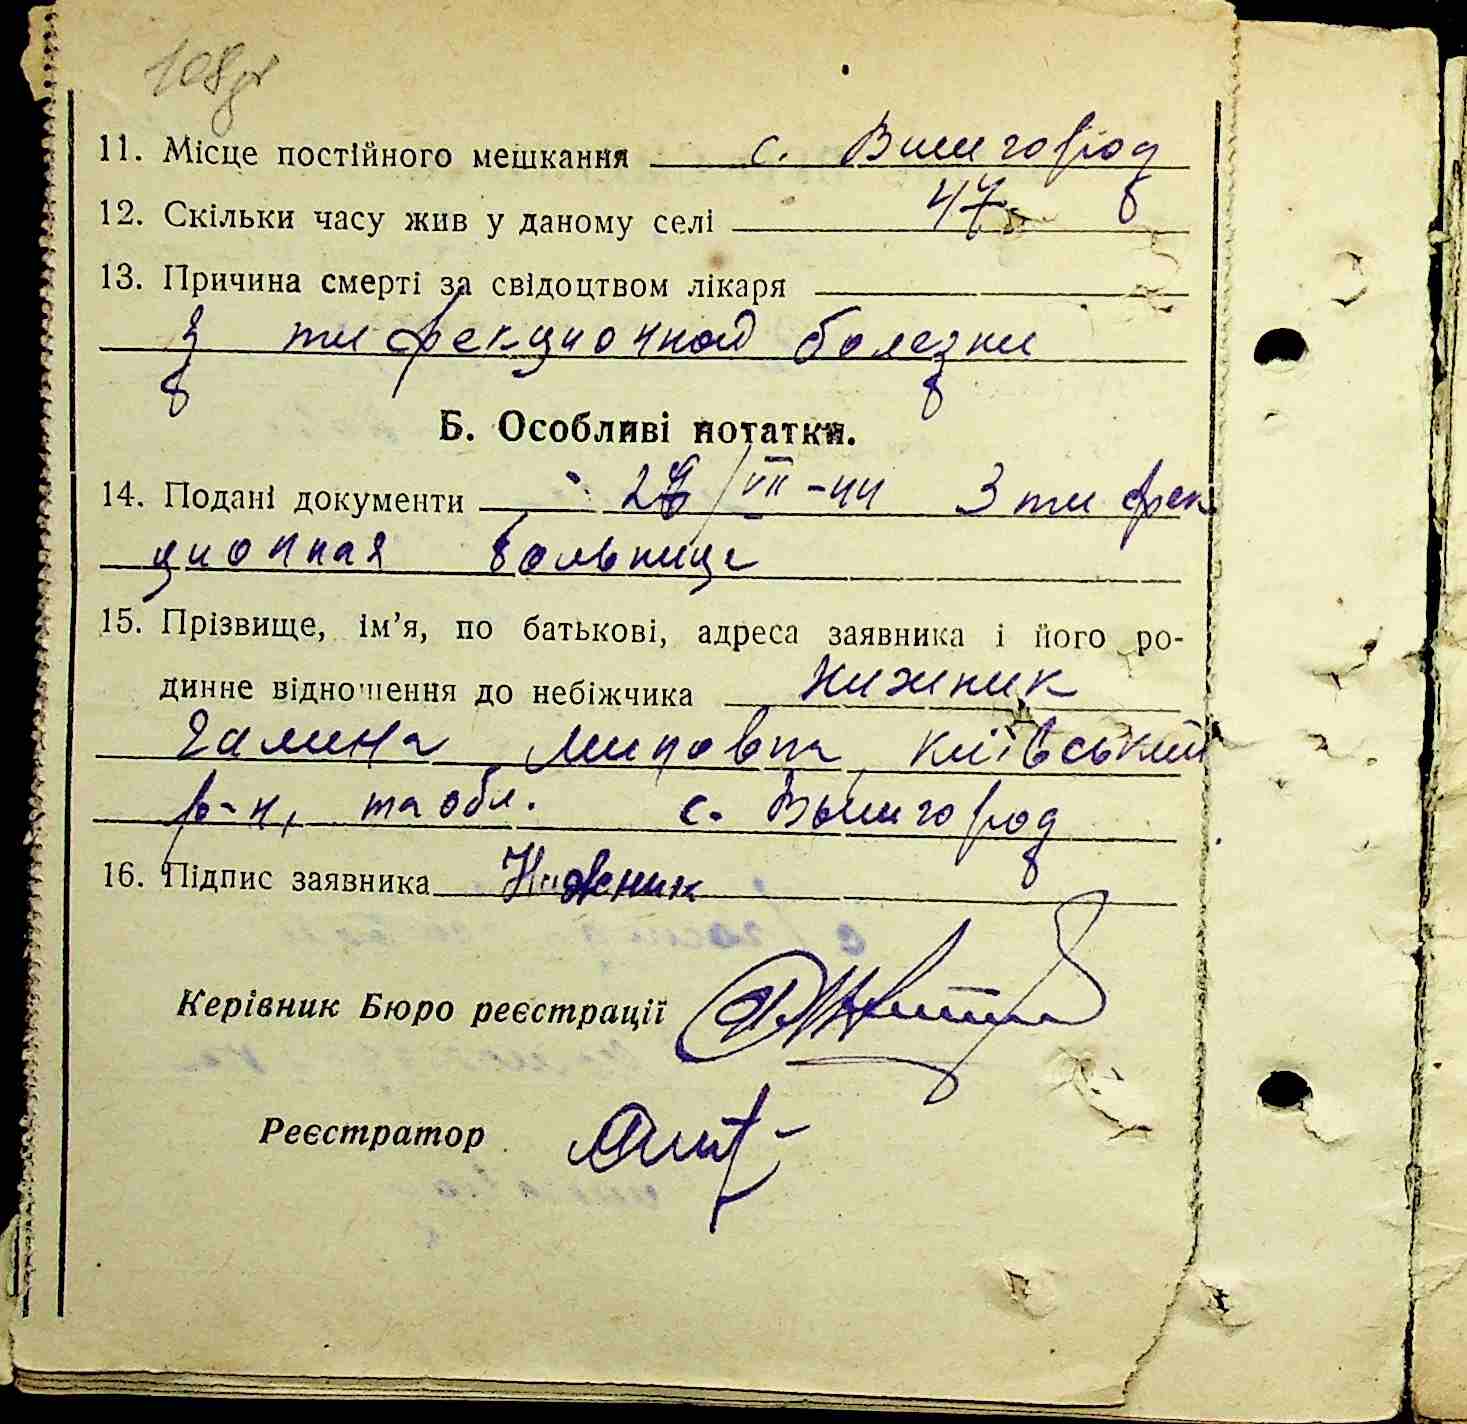 11. Місце постійного мешкання с. Вишгород
12. Скільки часу жив у даному селі 47
13. Причина смерті за свідоцтвом лікаря
з тифекционной болезни
Б. Особливі нотатки.
14. Подані документи VII-44 З тифек
ционная больнице
15. Прізвище, ім’я, по батькові, адреса заявника і його ро-
динне відношення до небіжчика Нижник
Галина Київський
р-н, та обл. с. Вышгород
16. Підпис заявника Нижник
Керівник Бюро реєстрації
Реєстратор